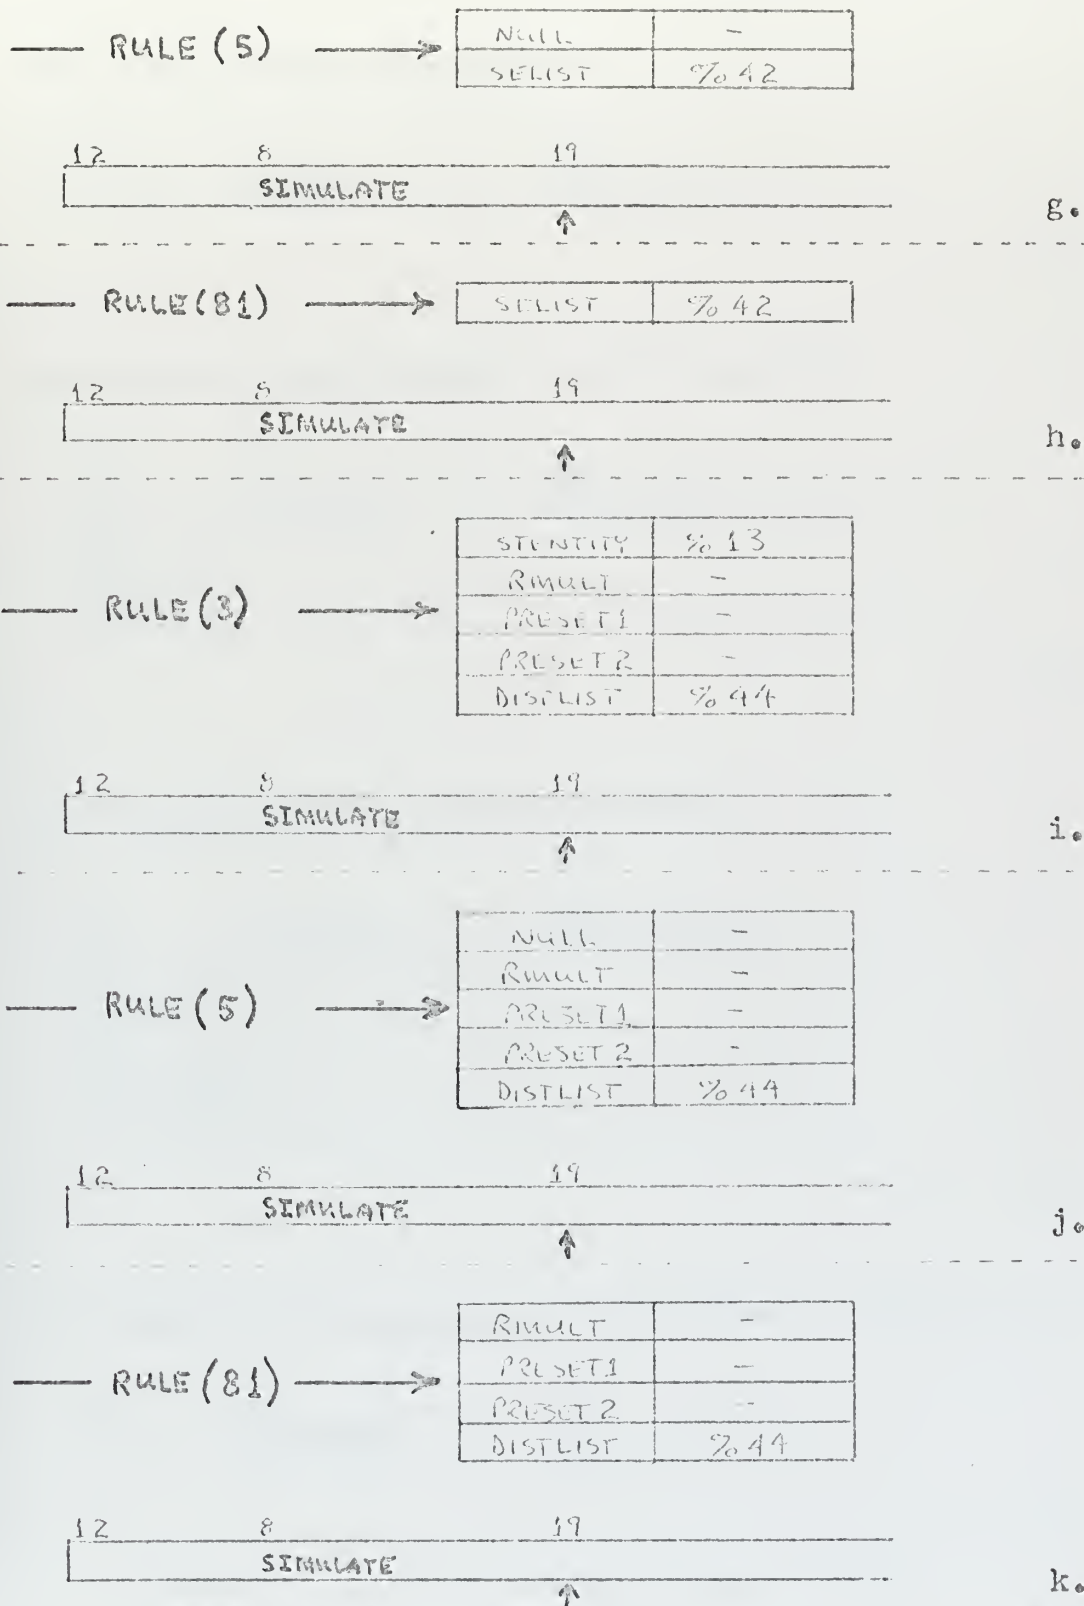 RULE (5)
NULL -
SELIST % 42
12 8 19
SIMULATE
g.
RULE (81)
SELIST % 42
12 8 19
SIMULATE
h.
RULE (3)
STENTITY % 13
RMULT -
PRESET1 -
PRESET 2 -
DISTLIST % 44
12 8 19
SIMULATE
i.
RULE (5)
NULL -
RMULT -
PRESET1 -
PRESET 2 -
DISTLIST % 44
12 8 19
SIMULATE
j.
RULE (81)
RMULT -
PRESET1 -
PRESET 2 -
DISTLIST % 44
12 8 19
SIMULATE
k.